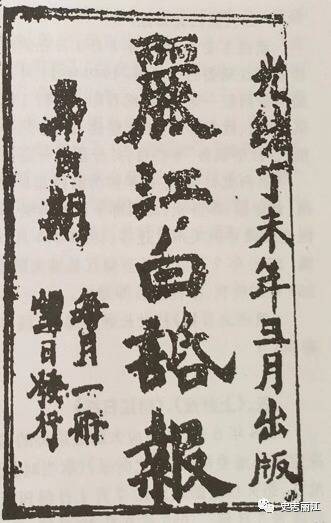 光緒丁未年五月出版
麗江白話報
第四期
每月一冊
日發行
史志丽江